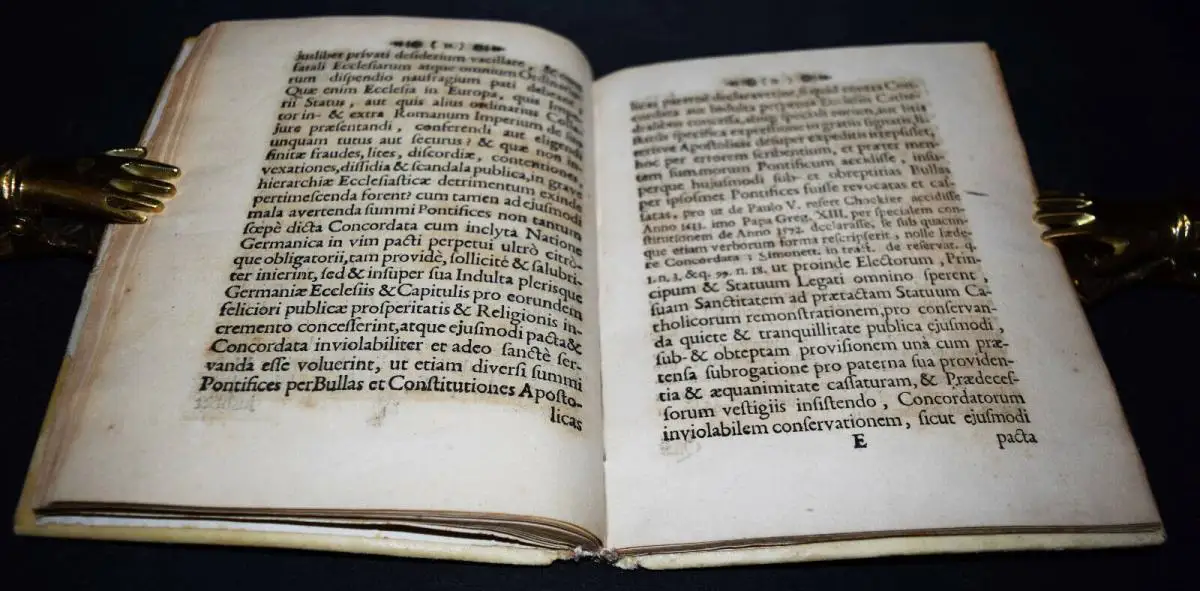 juslibet privati desiderium vacillare, & cum
fatali Ecclesiarum atque omnium Ordinario-
rum dispendio naufragium pati deberent.
Quæ enim Ecclesia in Europa, quis Impe-
rii Status, aut quis alius ordinarius Colla-
tor in- & extra Romanum Imperium de suo
jure præsentandi, conferendi aut eligendi
unquam tutus aut securus? & quæ non in-
finitæ fraudes, lites, discordiæ, contentiones,
vexationes, dissidia & scandala publica, in grave
hierarchiæ Ecclesiasticæ detrimentum exinde
pertimescenda forent? cum tamen ad ejusmodi
mala avertenda summi Pontifices non tantum
sœpè dicta Concordata cum inclyta Natione
Germanica in vim pacti perpetui ultrò citrò-
que obligatorii, tam providè, sollicitè & salubri-
ter inierint, sed & insuper sua Indulta plerisque
Germaniæ Ecclesiis & Capitulis pro eorundem
feliciori publicæ prosperitatis & Religionis in-
cremento concesserint, atque ejusmodi pacta &
Concordata inviolabiliter et adeo sanctè ser-
vanda esse voluerint, ut etiam diversi summi
Pontifices per Bullas et Constitutiones Aposto-
licas
licas palam declaraverint, si quid contra Con-
cordata aut Indulta perpetua Ecclesiis Cathe-
dralibus concessa, absque speciali eorum, aut
specifica expressione in gratiis signatis, li-
terisve Apostolicis desuper expeditis irrepsisset,
hoc per errorem scribentium, et præter men-
tem summorum Pontificum accidisse, insu-
perque hujusmodi sub- et obreptitias Bullas
per ipsosmet Pontifices fuisse revocatas et cas-
satas, pro ut de Paulo V. refert Chockier accidisse
Anno 1611. imo Papa Greg. XIII. per specialem con-
stitutionem de Anno 1572. declarasse, se sub quacun-
que etiam verborum forma rescripserit, nolle læde-
re Concordata; Simonett. in tract. de reservat. q.
1. n. 3. & q. 99. n. 18. ut proinde Electorum, Prin-
cipum & Statuum Legati omnino sperent,
suam Sanctitatem ad prætactam Statuum Ca-
tholicorum remonstrationem, pro conservan-
da quiete & tranquillitate publica ejusmodi,
sub- & obteptam provisionem unà cum præ-
tensa subrogatione pro paterna sua providen-
tia & æquanimitate cassaturam, & Prædeces-
sorum vestigiis insistendo, Concordatorum
inviolabilem conservationem, sicut ejusmodi
E pacta